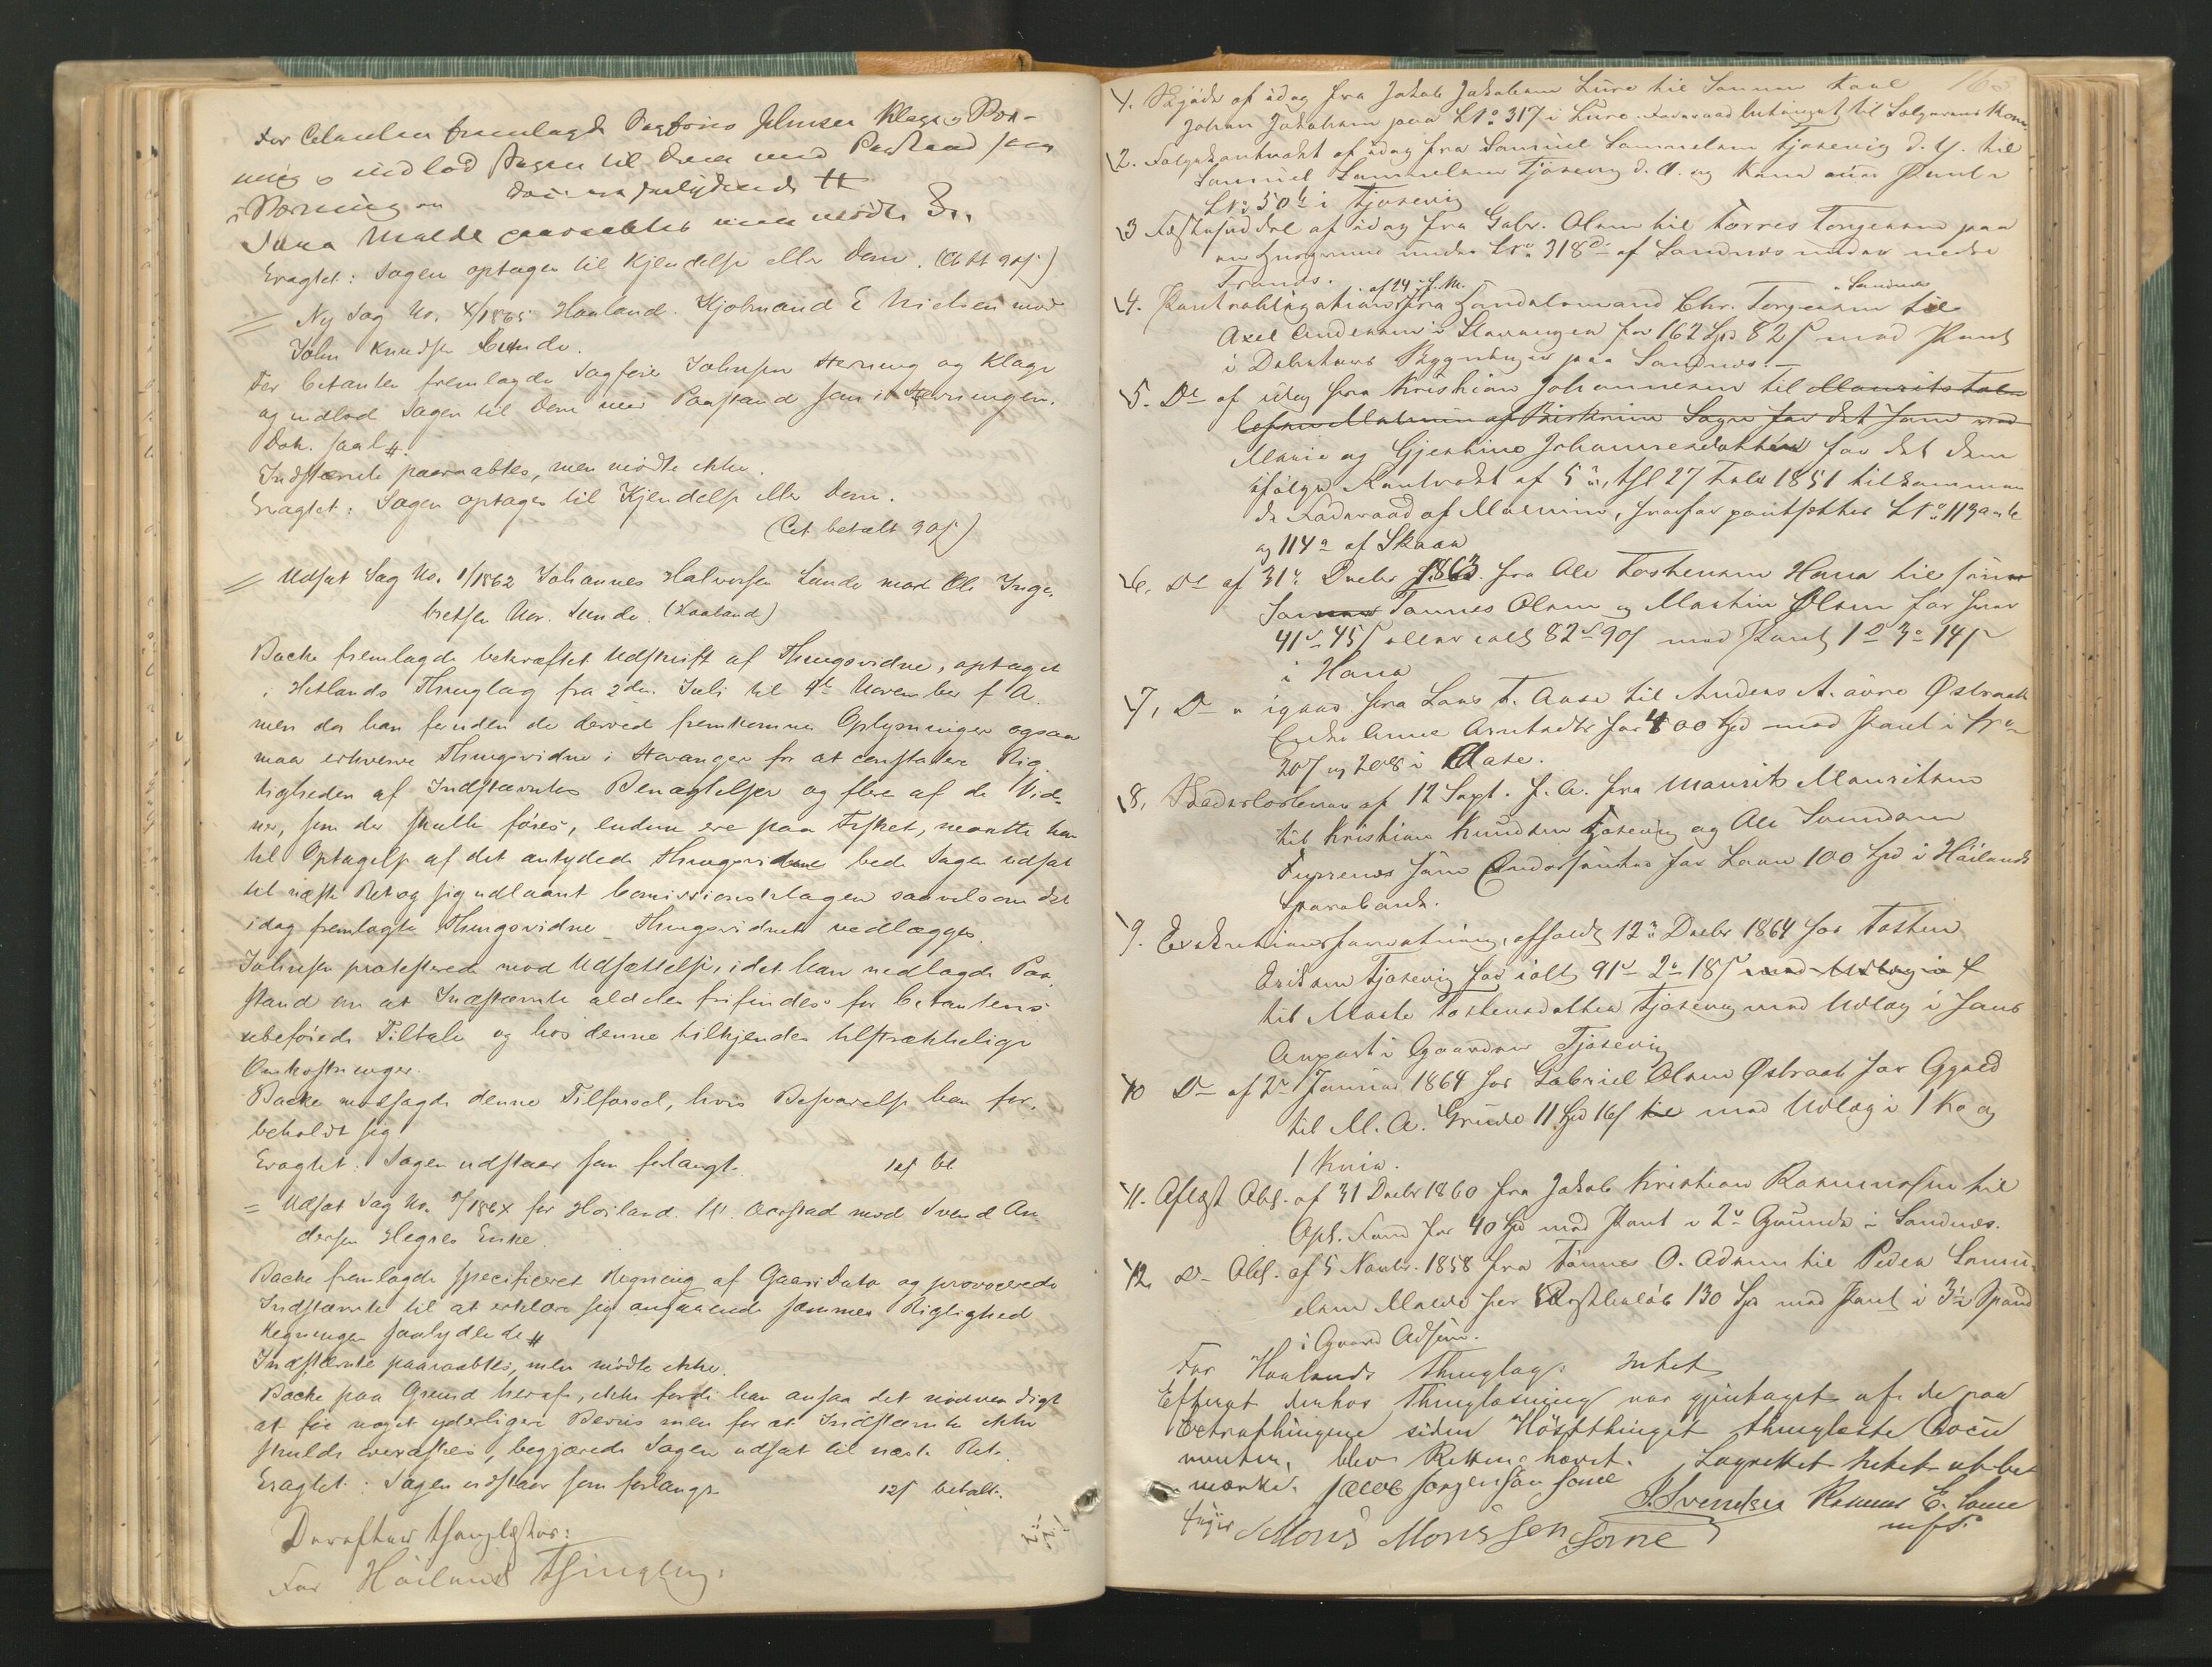 For Citanten fremlagde Sagfører Johnsen Klage, Stæv-
ning og indlod Sagen til Dom med Paastand som
i Stævningen
Jana Malde paaraabtes men mødte Ei.
Eragtet: Sagen optages til Kjendelse eller Dom. (Ct bt 90s)
Ny Sag No. 4/1865 Haaland. Kjøbmand E Nielsen mod
John Knudsen Bunde.
For Citanten fremlagde Sagfører Johnsen Stævning og Klage
og indlod Sagen til Dom med Paastand som i Stævningen.
Dok. saal #.
Indstævnte paaraabtes, men mødte ikke.
Eragtet: Sagen optages til Kjendelse eller Dom.
(Cit. betalt 90s)
Udsat Sag No. 1/1862 Johannes Halvorsen Sunde mod Ole Inge-
bretsen Nor. Sunde. (Haaland)
Backe fremlagde bekræftet Udskrift af Thingsvidne, optaget
i Hetlands Thinglag fra 2den Juli til 4de November f A.
men da han fandt de derved fremkomne Oplysninger ogsaa
maa erhverve Thingsvidne i Stavanger for at constatere Rig-
tigheden af Indstævntes Benægtelser og flere af de Vid-
ner, som der skulle føres, endnu ere paa Fisket, maatte han
til Optagelse af det antydede Thingsvidne bede Sagen udsat
til næste Ret og sig udlaant Comissionsklagen saavelsom det
idag fremlagte Thingsvidne - Thingsvidnet vedlægges.
Johnsen protesterede mod Udsættelse, idet han nedlagde Paa-
stand om at Indstævnte aldeles frifindes for Citantens
ubeføiede Tiltale og hos denne tilkjendes tilstrækkelige
Omkostninger.
Backe modsagde denne Tilførsel, hvis Besvarelse han for-
beholdt sig
Eragtet: Sagen udstaar som forlangt. 12s bt
Udsat Sag No. 7/1864 for Høiland. M. Aarstad mod Svend An-
dersen Hegres Enke.
Backe fremlagde specificeret Regning af Gaars Dato og provocerede
Indstævnte til at erklære sig angaaende sammes Rigtighed
Regningen saalydende #
Indstævnte paaraabtes, men mødte ikke.
Backe paa Grund heraf, ikke fordi han ansaa det nødvendigt
at føre noget yderligere Beviis men for at Indstævnte ikke
skulde overraskes, begjærede Sagen udsat til næste Ret.
Eragtet: Sagen udstaar som forlangt. 12s betalt.
Derefter thinglæstes:
For Høilands Thinglag:
1. Skjøde af idag fra Jakob Jakobsen Lura til Sønnen
Johan Jakobsen paa LNo 317 i Lura Føderaad betinget til Sælgeren
2. Følgekontrakt af idag fra Samuel Samuelsen Tjosevig d. y. til
Samuel Samuelsen Tjosevig d. Æ. og Kone
LNo 50b i Tjosevig
3 Fæsteseddel af idag fra Gabr. Olsen til Torres Torgersen paa
en Husgrund under LNo 318 af Sandnes
4. Pantobligation af 14 fra Handelsmand Chr. Torgersen Sandnes til
Axel Andersen i Stavanger for 162 Spd 82s mod Pant
i Debitors Bygninger paa Sandnæs.
5. Do af idag fra Kristian Johannesen til Maurits
Marie og Gjertine Johannesdøttre for det dem
ifølge Kontrakt af 5 , thl 27 1851 tilkommen-
de Føderaad af Malmim, hvorfor pantsættes LNo 113a
og 114a af Skaar
6. Do af 31te Decbr 1863 fra Ole Tostensen Hana til sine
Sønner Tønnes Olsen og Martin Olsen for hver
41 45s eller ialt 82 90s med Pant 1 3 14
i Hana
7. Do " igaar fra Lars T. Aase til Anders A. øvre Østraat
Enke Anne Arntsdtr for 400 Spd med Pant i
207 og 208 i Aase.
8. af 12 Sept. f. A. fra Maurits Mauritsen
til Kristian Knudsen Tjosevig og Ole Svendsen
som Endossenter for Laan 100 Spd i Høilands
Sparebank.
9. Exekutionsforretning, afholdt 12te Decbr 1864 for Tosten
Eriksen Tjosevig for ialt 91 2 18s
til Marte Tostensdatter Tjosevig med Udlæg i hans
Anpart i Gaarden Tjosevig
10 Do af 2den Januar 1864 hos Gabriel Olsen Østraat for Gjæld
til M. A. Grude 11 Spd 16s med Udlæg i 1 Ko og
1 Kvie.
11. Aflæst Obl. af 31 Decbr 1860 fra Jakob Kristian Rasmussen til
Opl. Fond for 40 Spd med Pant i 2de Grunde i Sandnes.
12. Do Obl. af 5 Novbr. 1858 fra Tønnes O. Adsem til Peder Samu-
elsen Malde for 130 Spd med Pant i 3½ Spand
i Gaard Adsem.
For Haalands Thinglag: Intet
Efterat derhos Thinglæsning var gjentaget af de paa
Extrathingene siden Høstthinget thinglæste Docu
menter, blev Retten hævet. Lagrettet Intet at be
mærke. Jacob Jørgensen Some J. Svendsen Rasmus E. Some
Mons Monssen Some